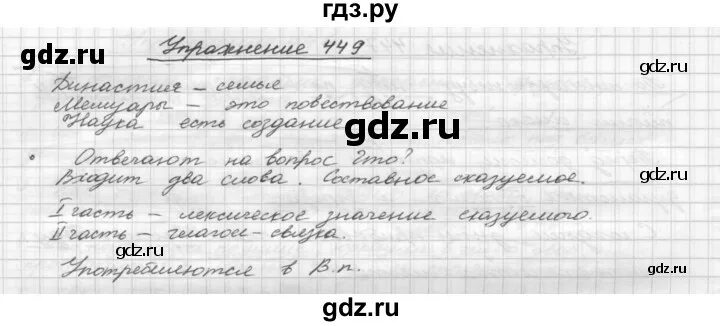 гдз.ру
Упражнение 449
gdz.ru gdz.ru
Династия – семья
Мемуары – это повествование
Наука есть создание
gdz.ru
Отвечают на вопрос Что?
Входит два слова. Составное сказуемое.
gdz.ru gdz.ru
I часть – лексическое значение сказуемого.
II часть – глагол-связка.
gdz.ru
Употребляются в В.п.
gdz.ru
gdz.ru